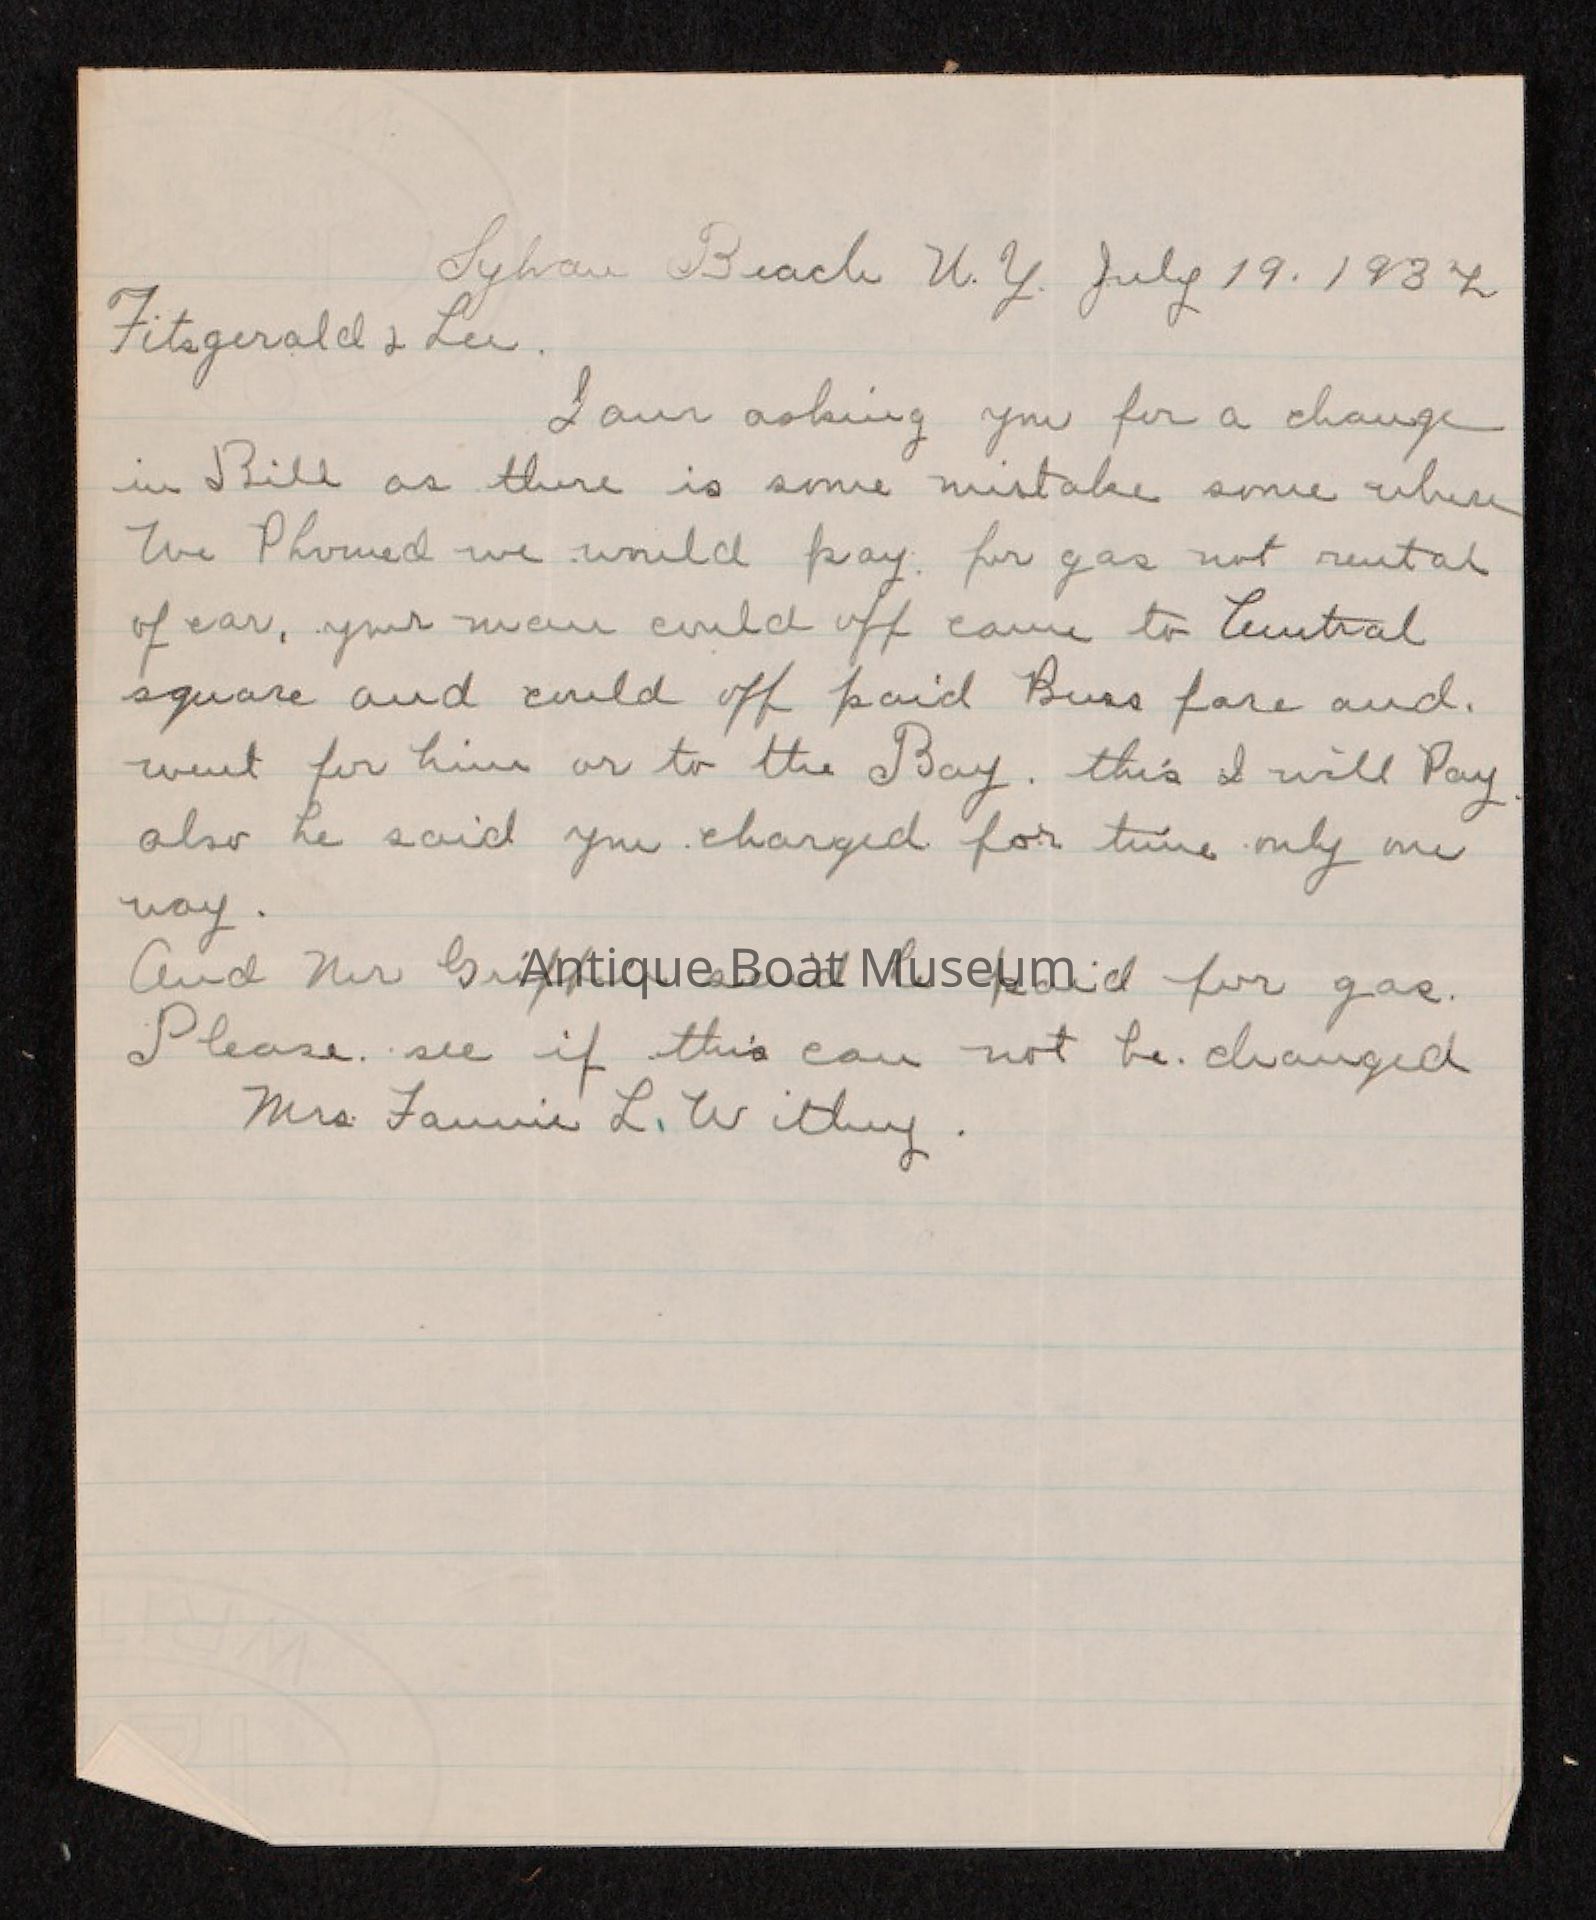 Sylvan Beach N.Y. July 19. 1932
Fitzgerald & Lee.
I am asking you for a change
in Bill as there is some mistake some where
We Phoned we would pay. for gas not rental
of car, your man could off came to Central
square and could off paid Buss fare and.
went for him or to the Bay. this I will Pay.
also he said you charged for time only one
way.
And Mr Griffin said he paid for gas.
Antique Boat Museum
Please. see if this can not be. changed
Mrs. Fannie L. Withey.